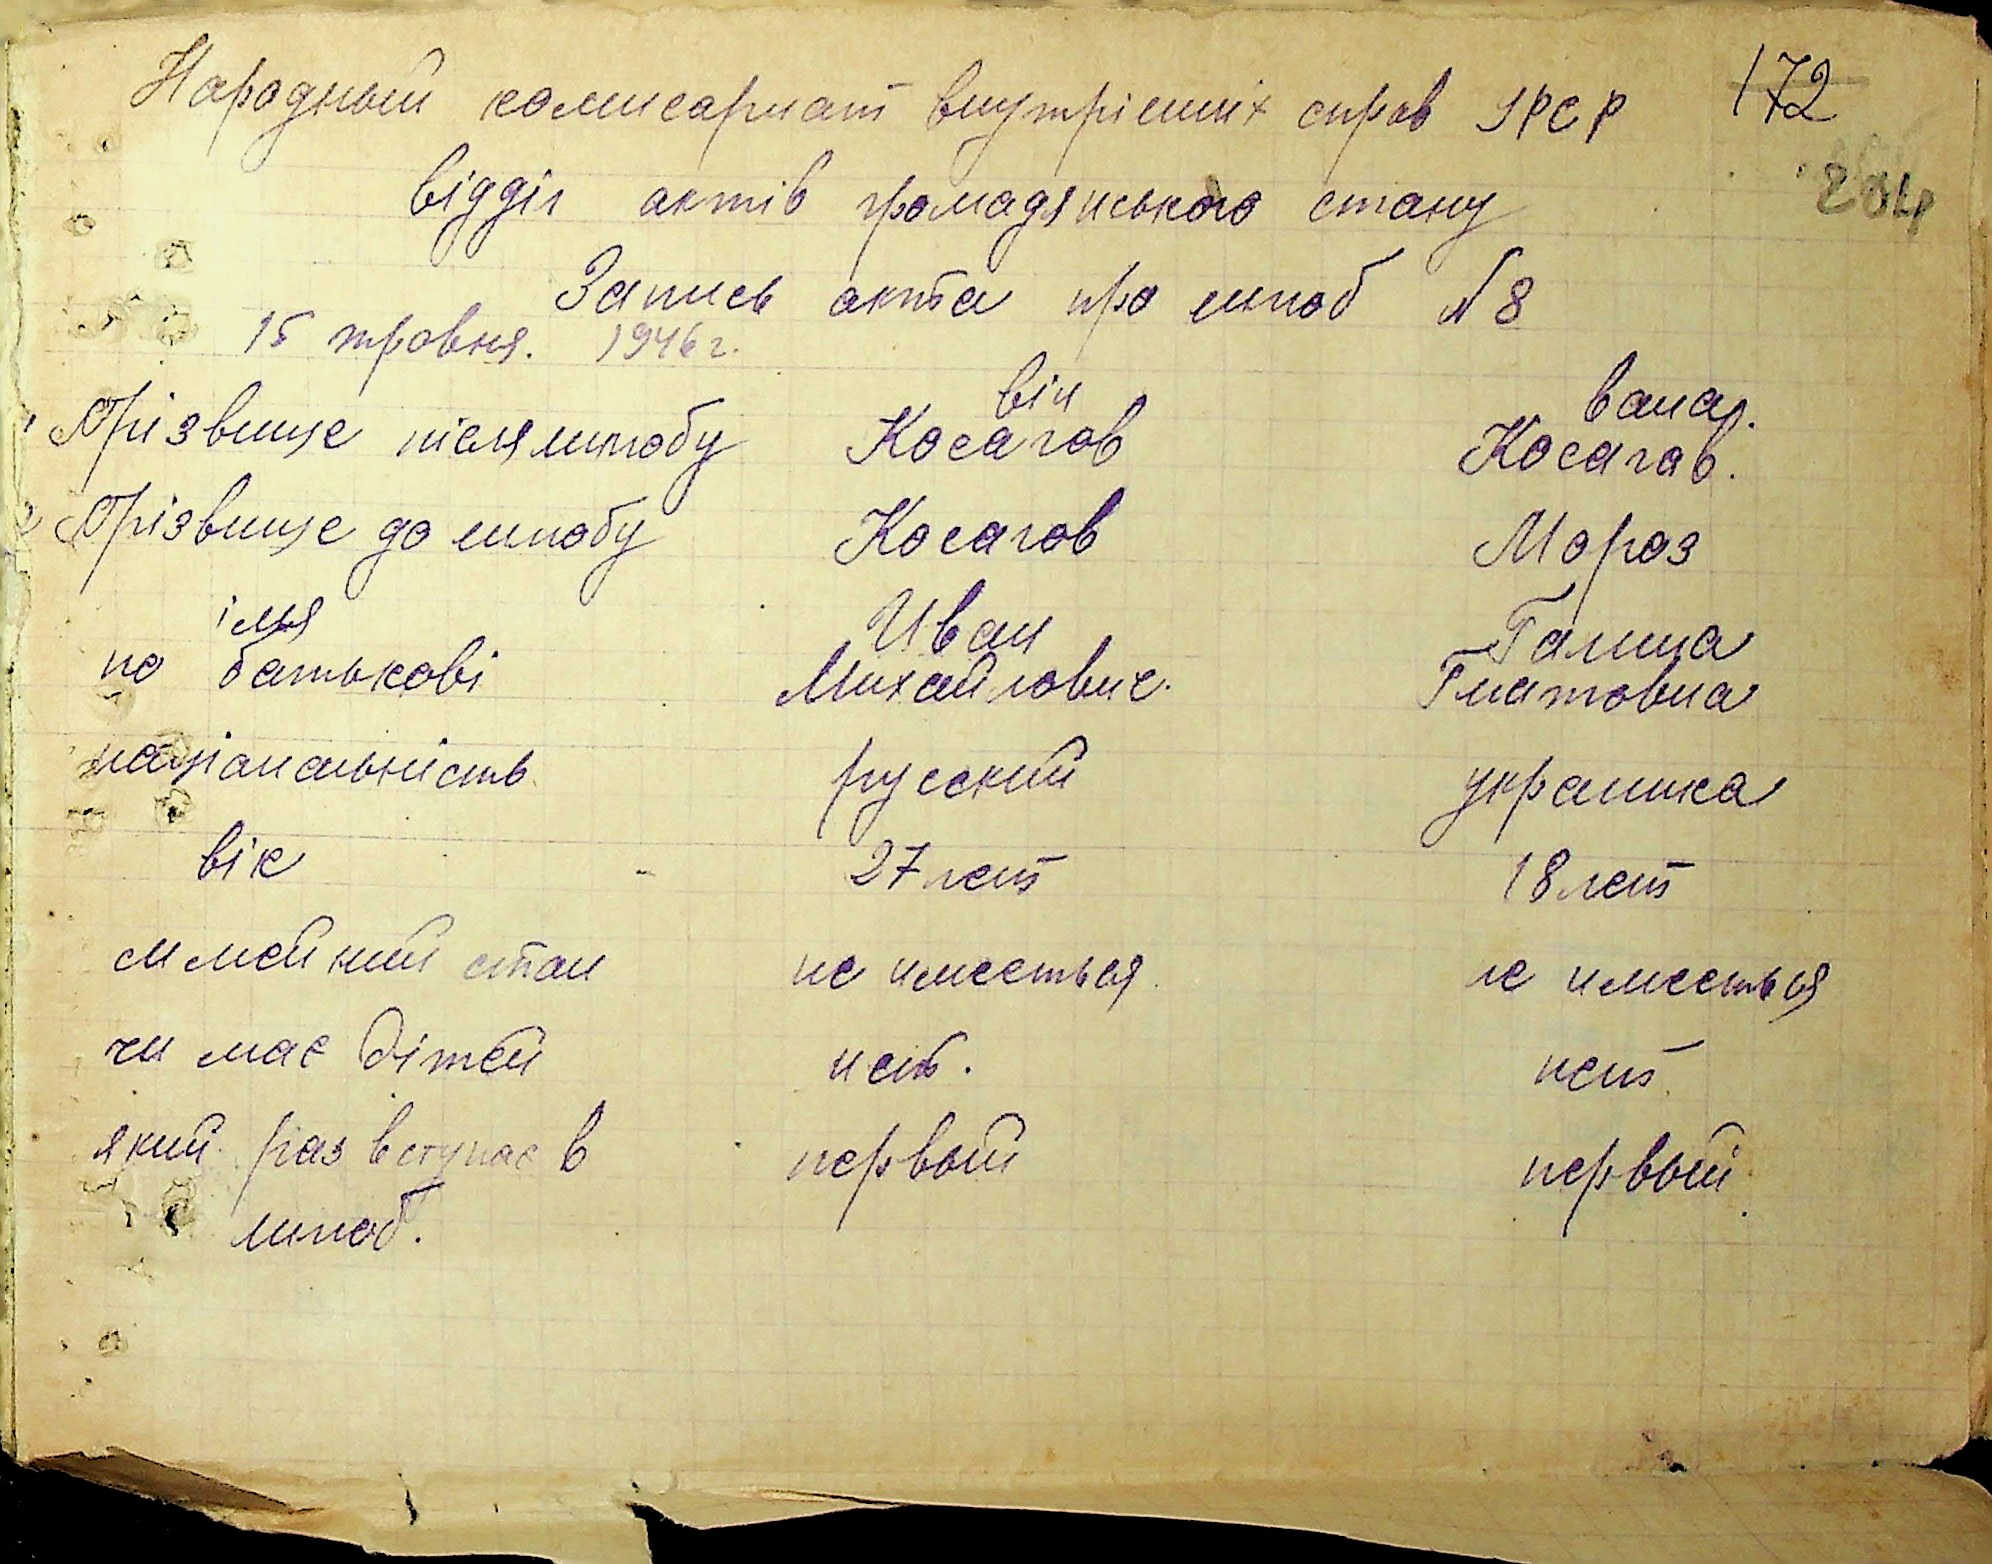 Народный комисариат внутрішніх справ УРСР 172
204
відділ актів громадянського стану
Запись акта про шлюб №8
15 травня. 1946 г.
він вона
1 Прізвище після шлюбу Косагов Косагов.
2 Прізвище до шлюбу Косагов Мороз
імья Иван Галина
по батькові Михайлович. Гнатовна
національність русский украинка
вік 27 лет 18 лет
симейний стан не имееться не имееться
чи має дітей нет. нет
який раз вступає в первый первый
шлюб.